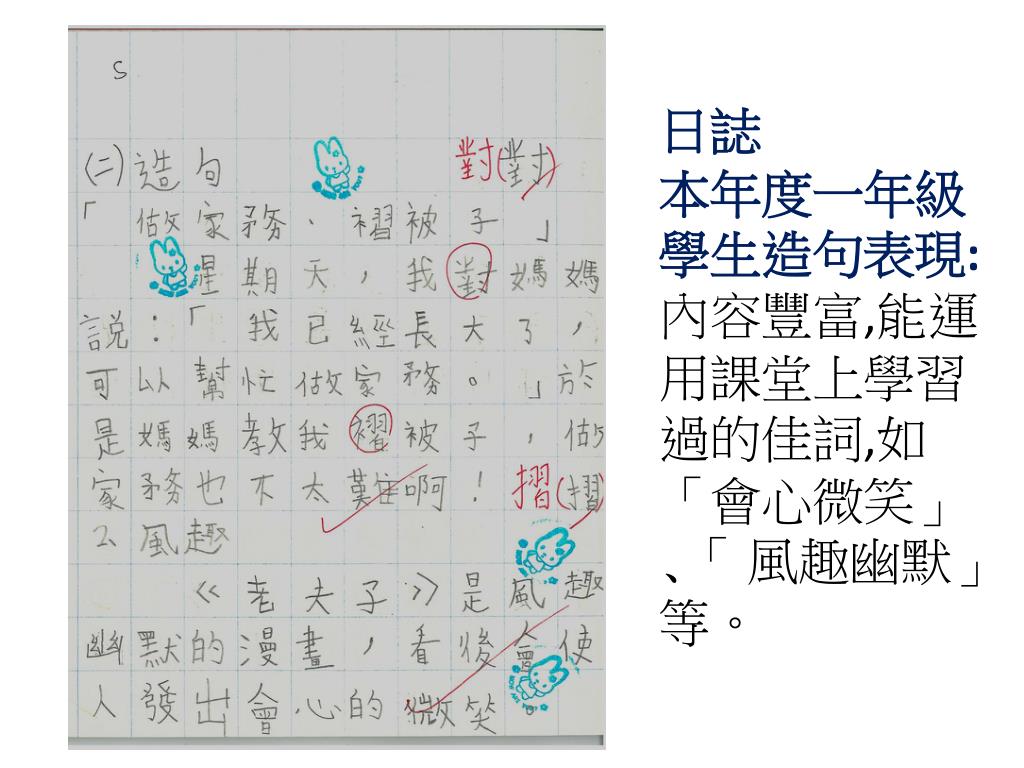 S
(二)造句 對(對)
「做家務、褶被子」
星期天，我對媽媽
說：「我已經長大了，
可以幫忙做家務。」於
是媽媽教我褶被子，做
家務也不太難啊！摺(摺)
2、風趣
《老夫子》是風趣
幽默的漫畫，看後會使
人發出會心的微笑。
日誌
本年度一年級
學生造句表現:
內容豐富,能運
用課堂上學習
過的佳詞,如
「會心微笑」
、「風趣幽默」
等。